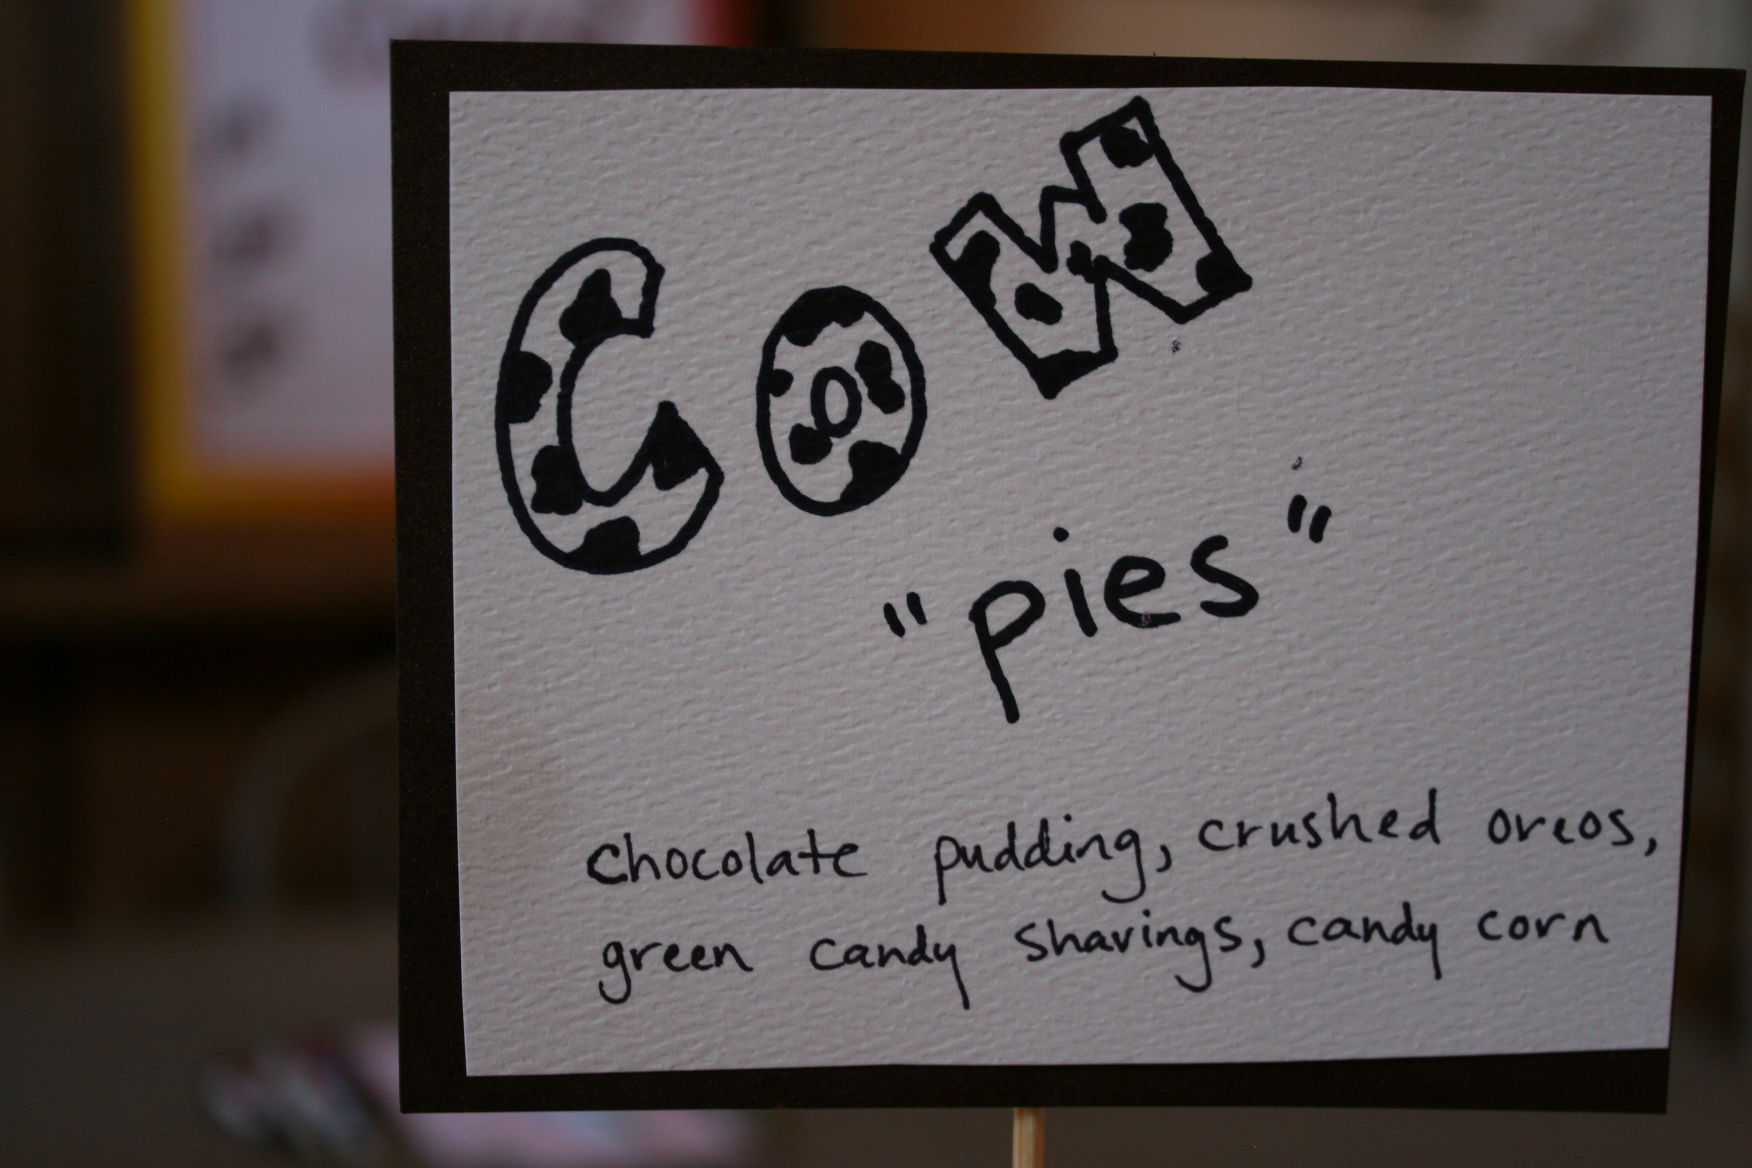 COW
"pies"
chocolate pudding, crushed oreos,
green candy shavings, candy corn